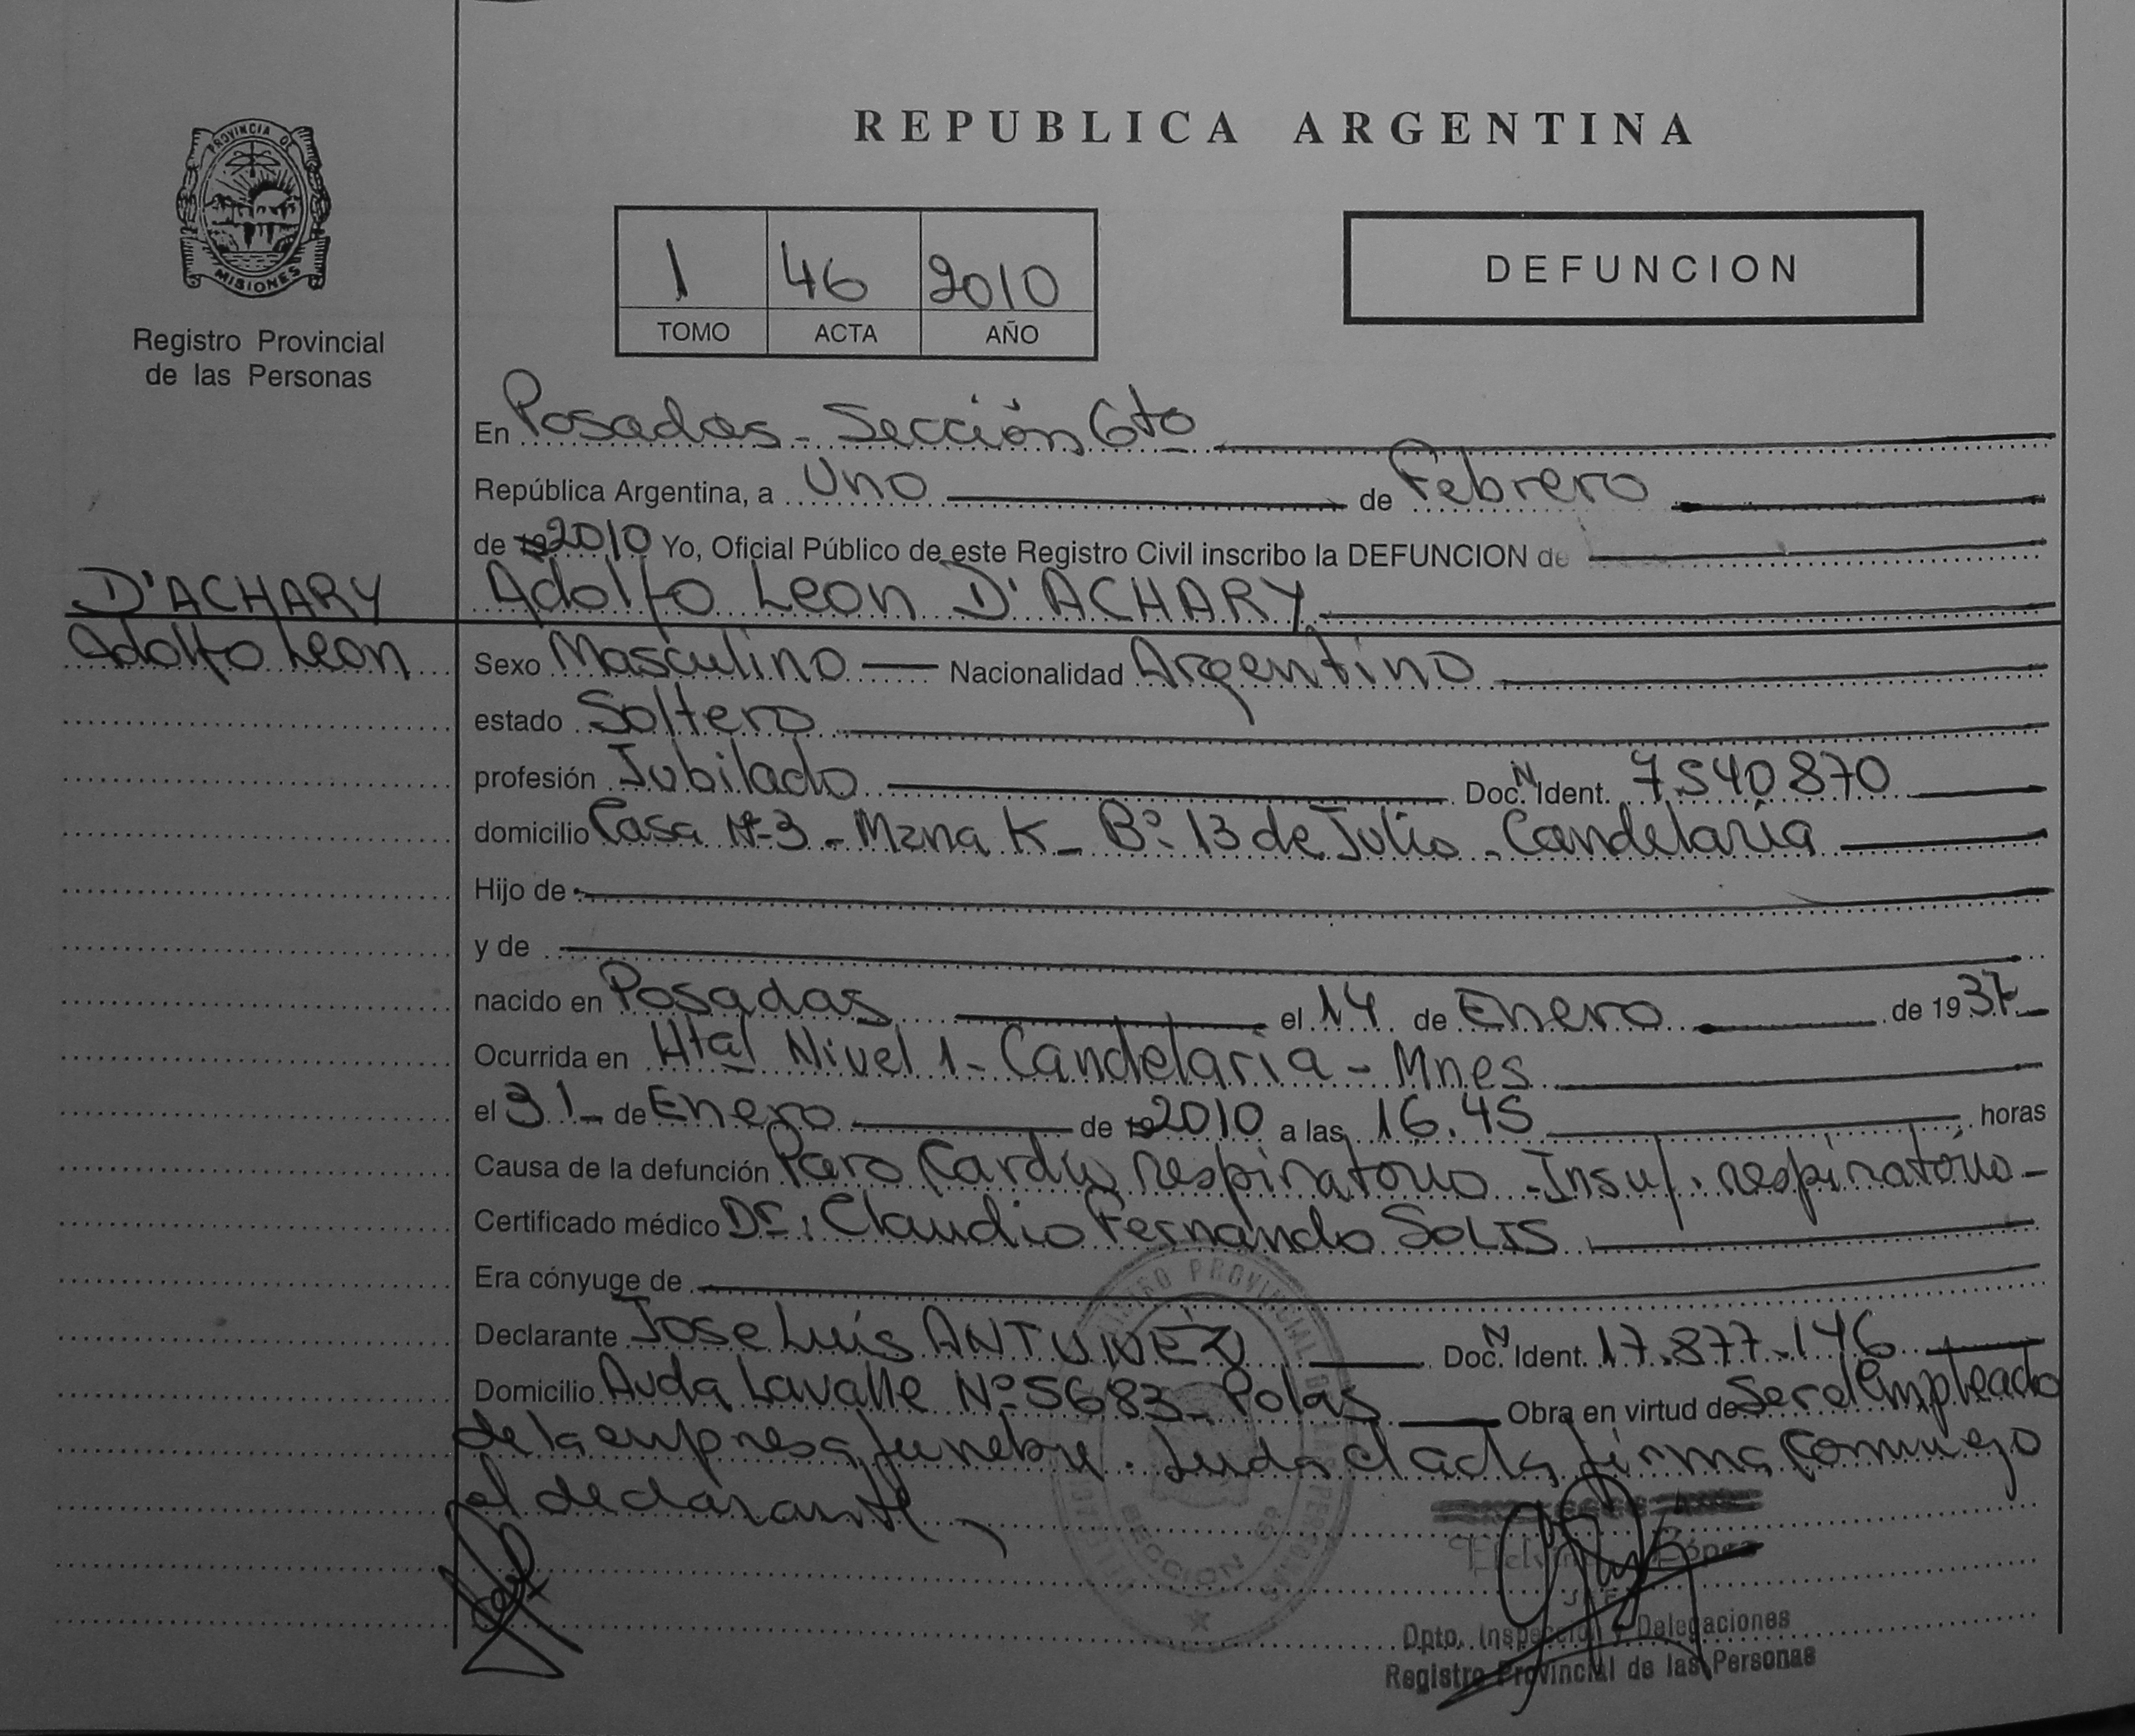 PROVINCIA DE
MISIONES
Registro Provincial
de las Personas
REPUBLICA ARGENTINA
1 46 2010
TOMO ACTA AÑO
DEFUNCION
En Posadas - Sección 6ta
República Argentina, a Uno de Febrero
de 19 2010 Yo, Oficial Público de este Registro Civil inscribo la DEFUNCION de
D'ACHARY Adolfo Leon D'ACHARY
Adolfo Leon Sexo Masculino Nacionalidad Argentino
estado Soltero
profesión Jubilado Doc. N Ident. 7540870
domicilio Casa Nº 3 - Mzna K - Bº 13 de Julio - Candelaria
Hijo de
y de
nacido en Posadas el 14 de Enero de 1937
Ocurrida en Htal Nivel 1 - Candelaria - Mnes
el 31 de Enero de 19 2010 a las 16.45 horas
Causa de la defunción Paro Cardio respiratorio - Insuf. respiratoria
Certificado médico Dr. Claudio Fernando SOLIS
Era cónyuge de
Declarante Jose Luis ANTUNEZ Doc. N Ident. 17.877.146
Domicilio Avda Lavalle Nº 5683 - Pdas Obra en virtud de ser el empleado
de la empresa funebre. Leida el acta firma conmigo
el declarante
REGISTRO PROVINCIAL DE LAS PERSONAS
SECCION 6ª
López
JEFE
Dpto. Inspección y Delegaciones
Registro Provincial de las Personas